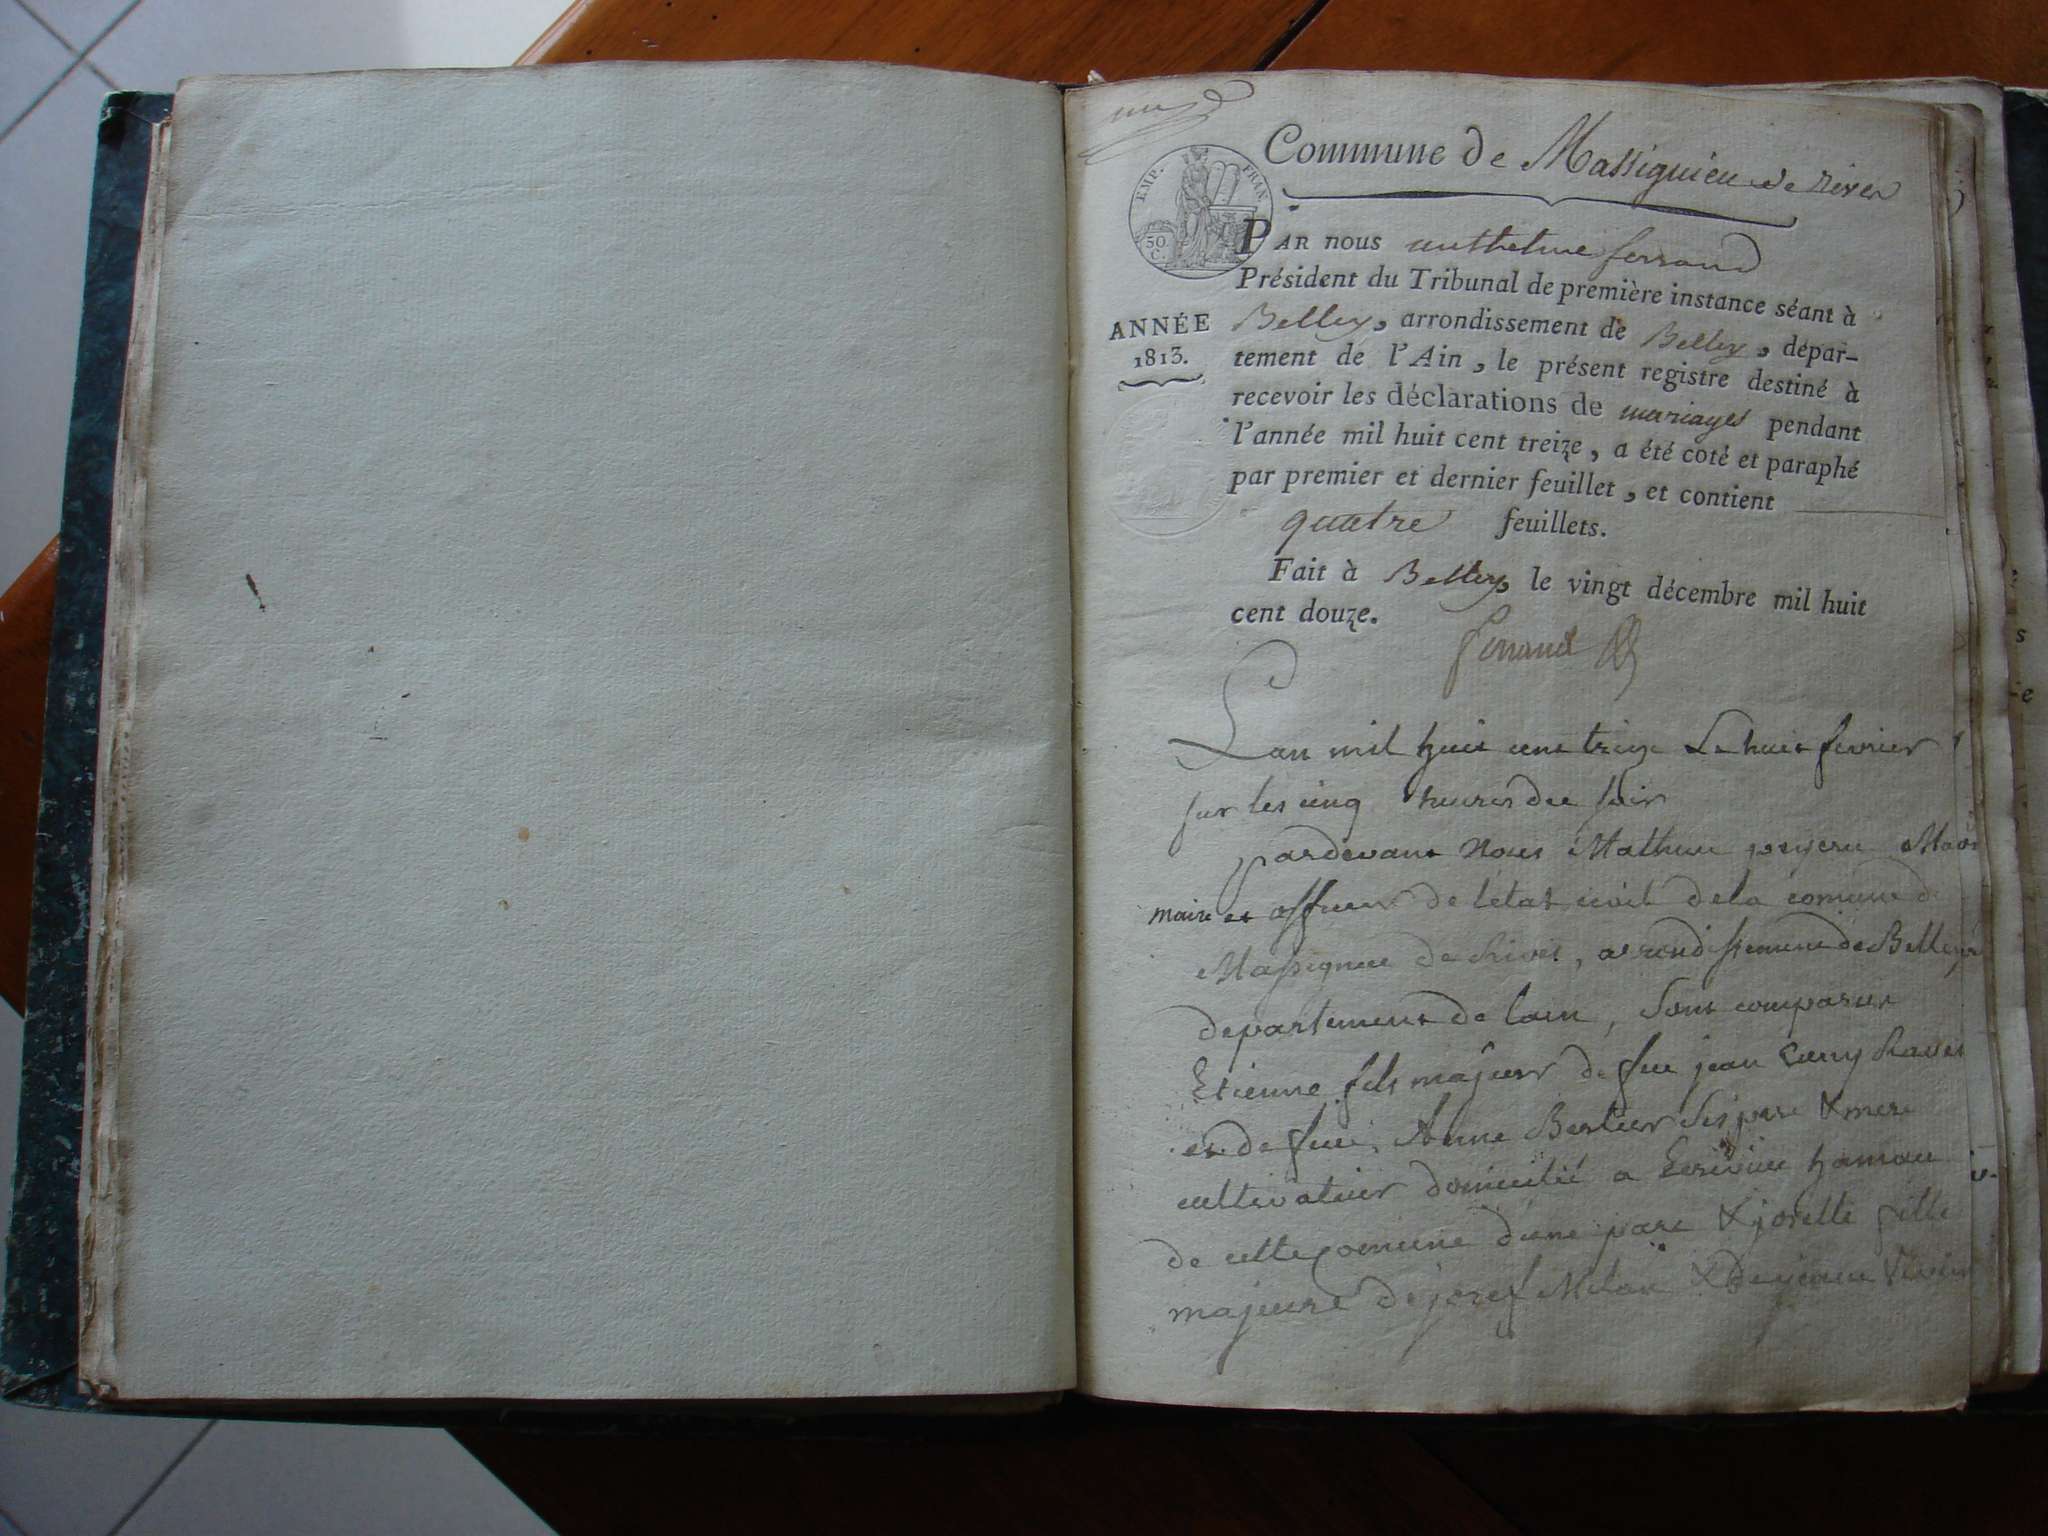 une
Commune de Massignieu de rives
EMP. FRAN
50.
C.
PAR nous anthelme ferrand
Président du Tribunal de première instance séant à
ANNÉE
1813.
Belley, arrondissement de Belley, dépar-
tement de l'Ain, le présent registre destiné à
recevoir les déclarations de mariages pendant
l'année mil huit cent treize, a été coté et paraphé
par premier et dernier feuillet, et contient
quatre feuillets.
Fait à Belley, le vingt décembre mil huit
cent douze.
ferrand
Lan mil huit cent treize Le huit fevrier
sur les cinq heures du soir
pardevant Nous
maire et officier de letat civil de la comune de
Massigneu de Rives, arondissement de Belley
departement de lain, Sont comparus
Etienne fils majeur de feu jean
et de feue Anne Bertier Ses pere & mere
cultivateur domicilié a hamau
de cette comune dune part & josette fille
majeure de josef Milan &